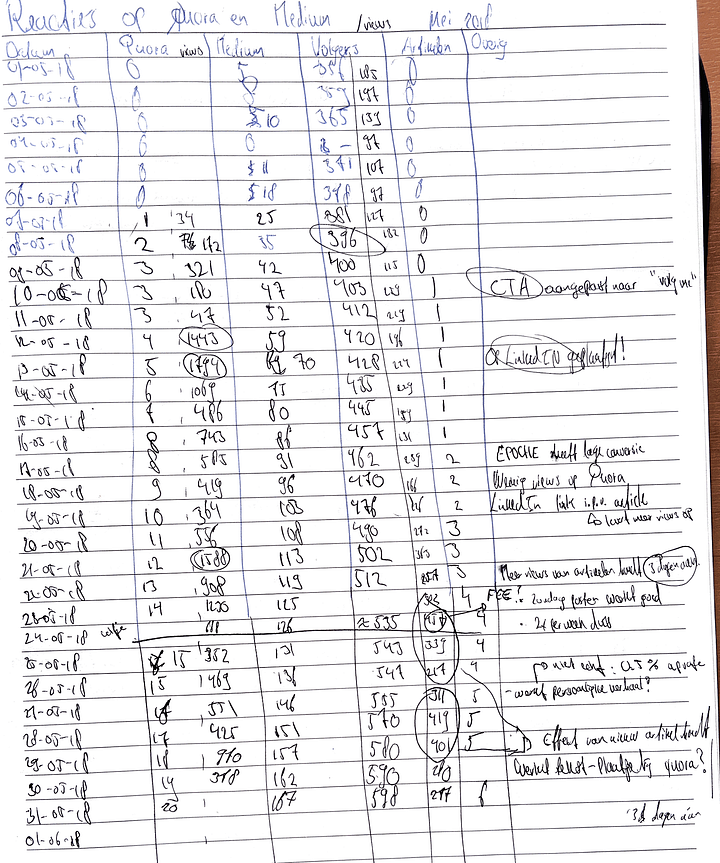 Reacties op Quora en Medium /views Mei 2018
Datum Quora views Medium Volgers Artikelen Overig
01-05-18 0 5 356 185 0
02-05-18 0 8 359 197 0
03-05-18 0 10 365 139 0
04-05-18 0 0 - 97 0
05-05-18 0 11 371 107 0
06-05-18 0 18 378 97 0
07-05-18 1 34 25 381 127 0
08-05-18 2 172 35 396 182 0
09-05-18 3 321 42 400 115 0
10-05-18 3 180 47 403 229 1 CTA aangepast naar "volg me"
11-05-18 3 47 52 412 219 1
12-05-18 4 1443 59 420 196 1
13-05-18 5 1794 70 428 227 1 Op LinkedIN geplaatst!
14-05-18 6 1069 75 435 229 1
15-05-18 7 486 80 445 159 1
16-05-18 8 743 86 457 131 1
17-05-18 8 585 91 462 259 2 EPOCHE heeft lage conversie
18-05-18 9 419 96 470 166 2 Weinig views op Quora
19-05-18 10 364 103 476 216 2 LinkedIn link i.p.v. article
20-05-18 11 556 108 490 272 3 meer views op
21-05-18 12 1588 113 502 363 3
22-05-18 13 908 119 512 257 3 Meer views van artikelen houdt 3 dagen aan
23-05-18 14 1220 125 322 4 FEE? zondag posten werkt goed
24-05-18 118 126 ≈ 535 457 4 2x per week dus
25-05-18 15 352 131 543 339 4
26-05-18 15 1469 136 547 217 4 niet echt: 0.5% upvote
27-05-18 551 146 555 311 5 - werkt persoonlijke verhaal?
28-05-18 17 425 151 570 419 5
29-05-18 18 910 157 580 401 5 Effect van nieuw artikel houdt
30-05-18 19 378 162 590 280 Werkt tekst-plaatje bij quora?
31-05-18 20 167 598 287 6 3 dagen aan
01-06-18